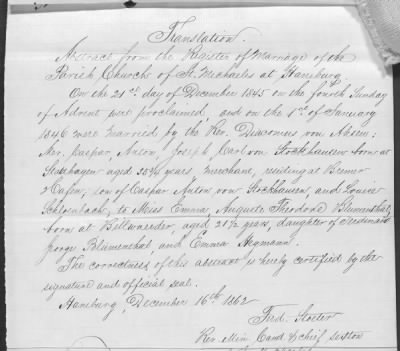 Translation.
Abstract from the Register of Marriage of the
Parish Church of St. Michaelis at Hamburg.
On the 21st day of December 1845 on the fourth Sunday
of Advent were proclaimed, and on the 1st of January
1846 were married by the Rev. von
Mr. Caspar, Anton, Joseph Carl von Stockhausen born at
aged years, merchant, residing at Bremer
Hafen, son of Caspar Anton von Stockhausen, and Louise
to Miss Emma, Auguste Theodore Blumenthal,
born at Billwaerder, aged 21 1/2 years, daughter of
George Blumenthal, and Emma Hegmann.
The correctness of this abstract is hereby certified by the
signature and official seal.
Hamburg, December 16th 1862
Fred.
Rev. Min. Cand & chief sexton